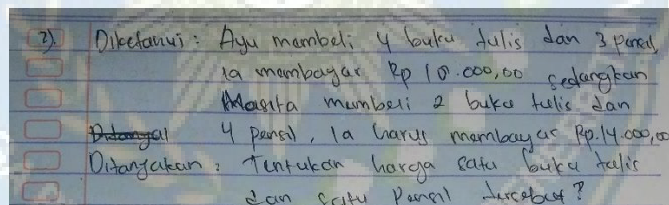 2). Diketahui : Ayu membeli 4 buku tulis dan 3 pensil,
Ia membayar Rp 10.000,00 sedangkan
Masita membeli 2 buku tulis dan
4 pensil, Ia harus membayar Rp.14.000,00
Ditanyakan : Tentukan harga satu buku tulis
dan satu Pensil tersebut?